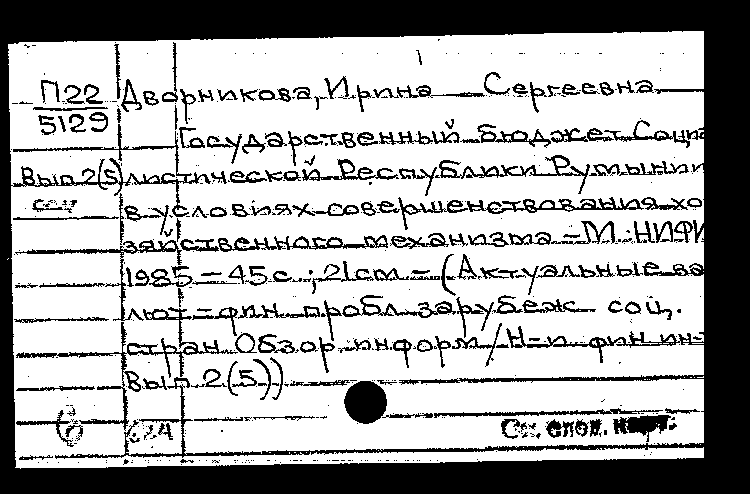 П22 Дворникова, Ирина Сергеевна.
5129
Государственный бюджет Соци
Вып 2(5) листической Республики Румынии
в условиях совершенствования хо
зяйственного механизма – М.: НИФИ
1985 – 45 с.; 21 см – (Актуальные ва
лют=фин пробл зарубеж соц.
стран Обзор. информ / Н=и фин ин-т
Вып 2(5))
См. след.